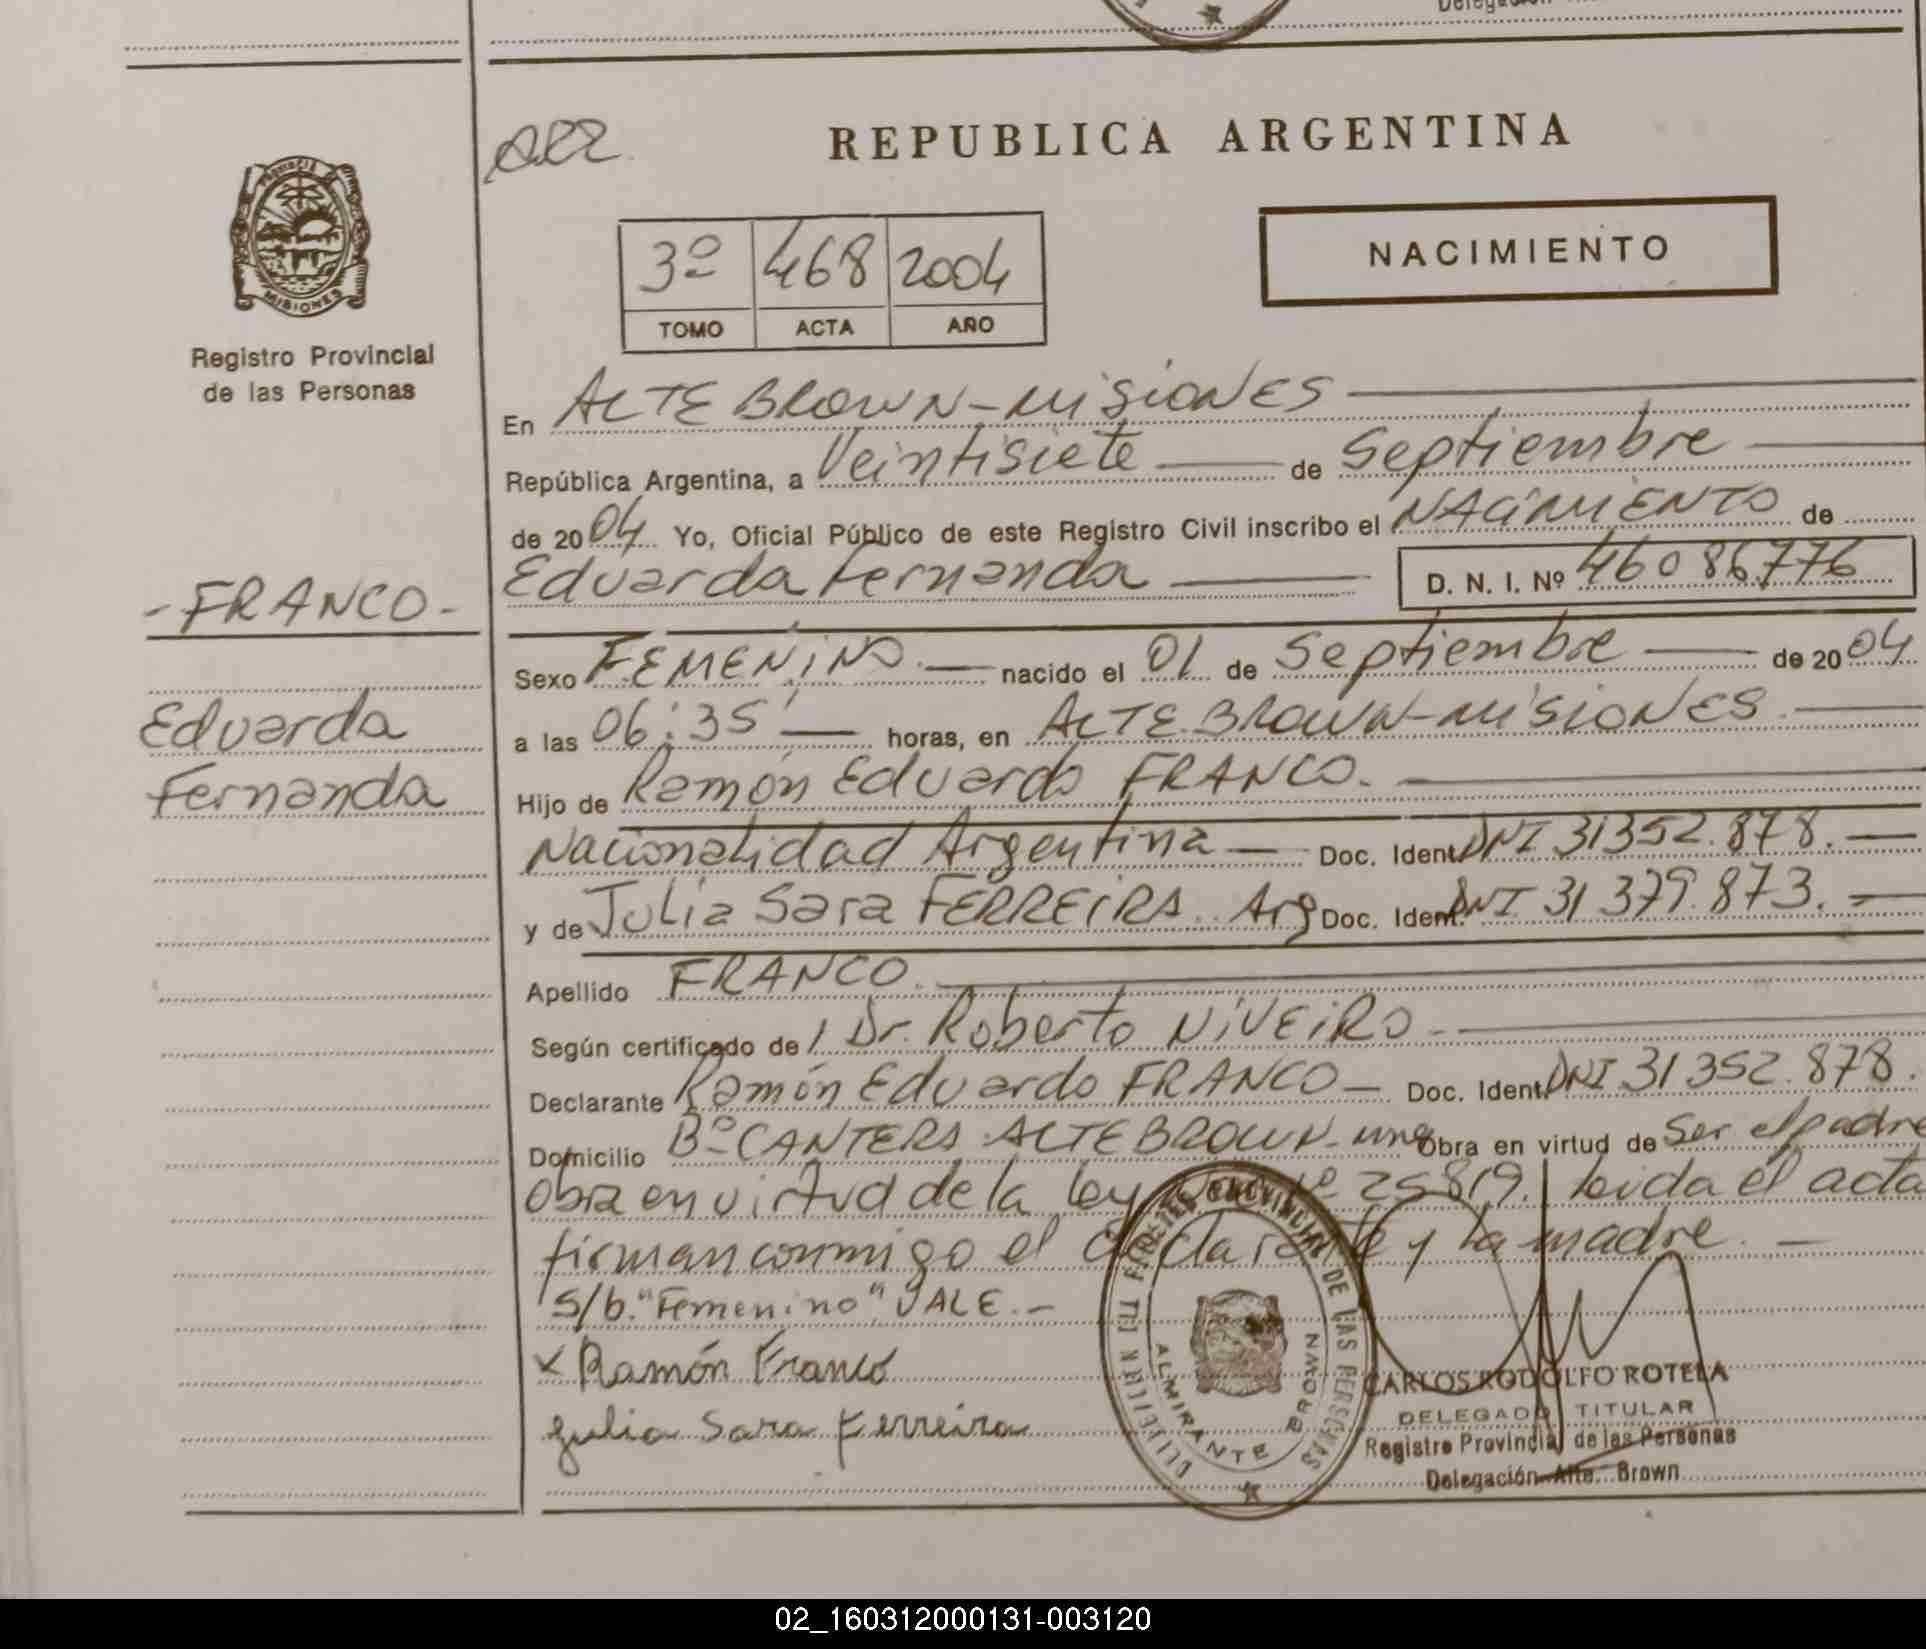 Delegación
REPUBLICA ARGENTINA
PROVINCIA
MISIONES
Registro Provincial
de las Personas
3º 468 2004
TOMO ACTA AÑO
NACIMIENTO
En ALTE BROWN-MISIONES
República Argentina, a Veintisiete de Septiembre
de 2004 Yo, Oficial Público de este Registro Civil inscribo el NACIMIENTO de
-FRANCO-
Eduarda Fernanda
D. N. I. Nº 46086776
Sexo FEMENINO. nacido el 01 de Septiembre de 2004
Eduarda
Fernanda
a las 06:35' horas, en ALTE.BROWN-MISIONES.
Hijo de Ramón Eduardo FRANCO.
Nacionalidad Argentina Doc. Ident. DNI 31352.878.
y de Julia Sara FERREIRA. Arg Doc. Ident. DNI 31379.873.
Apellido FRANCO.
Según certificado de Dr. Roberto NIVEIRO
Declarante Ramón Eduardo FRANCO Doc. Ident. DNI 31352.878.
Domicilio Bº CANTERA ALTE BROWN-mnes Obra en virtud de Ser el padre
Obra en virtud de la ley Nº 25819. leida el acta
firman conmigo el declarante y la madre.
S/b. "Femenino" VALE.-
x Ramón Franco
Julia Sara Ferreira
REGISTRO PROVINCIAL DE LAS PERSONAS
ALMIRANTE BROWN
CARLOS RODOLFO ROTELA
DELEGADO TITULAR
Registro Provincial de las Personas
Delegación Alte. Brown
02_160312000131-003120